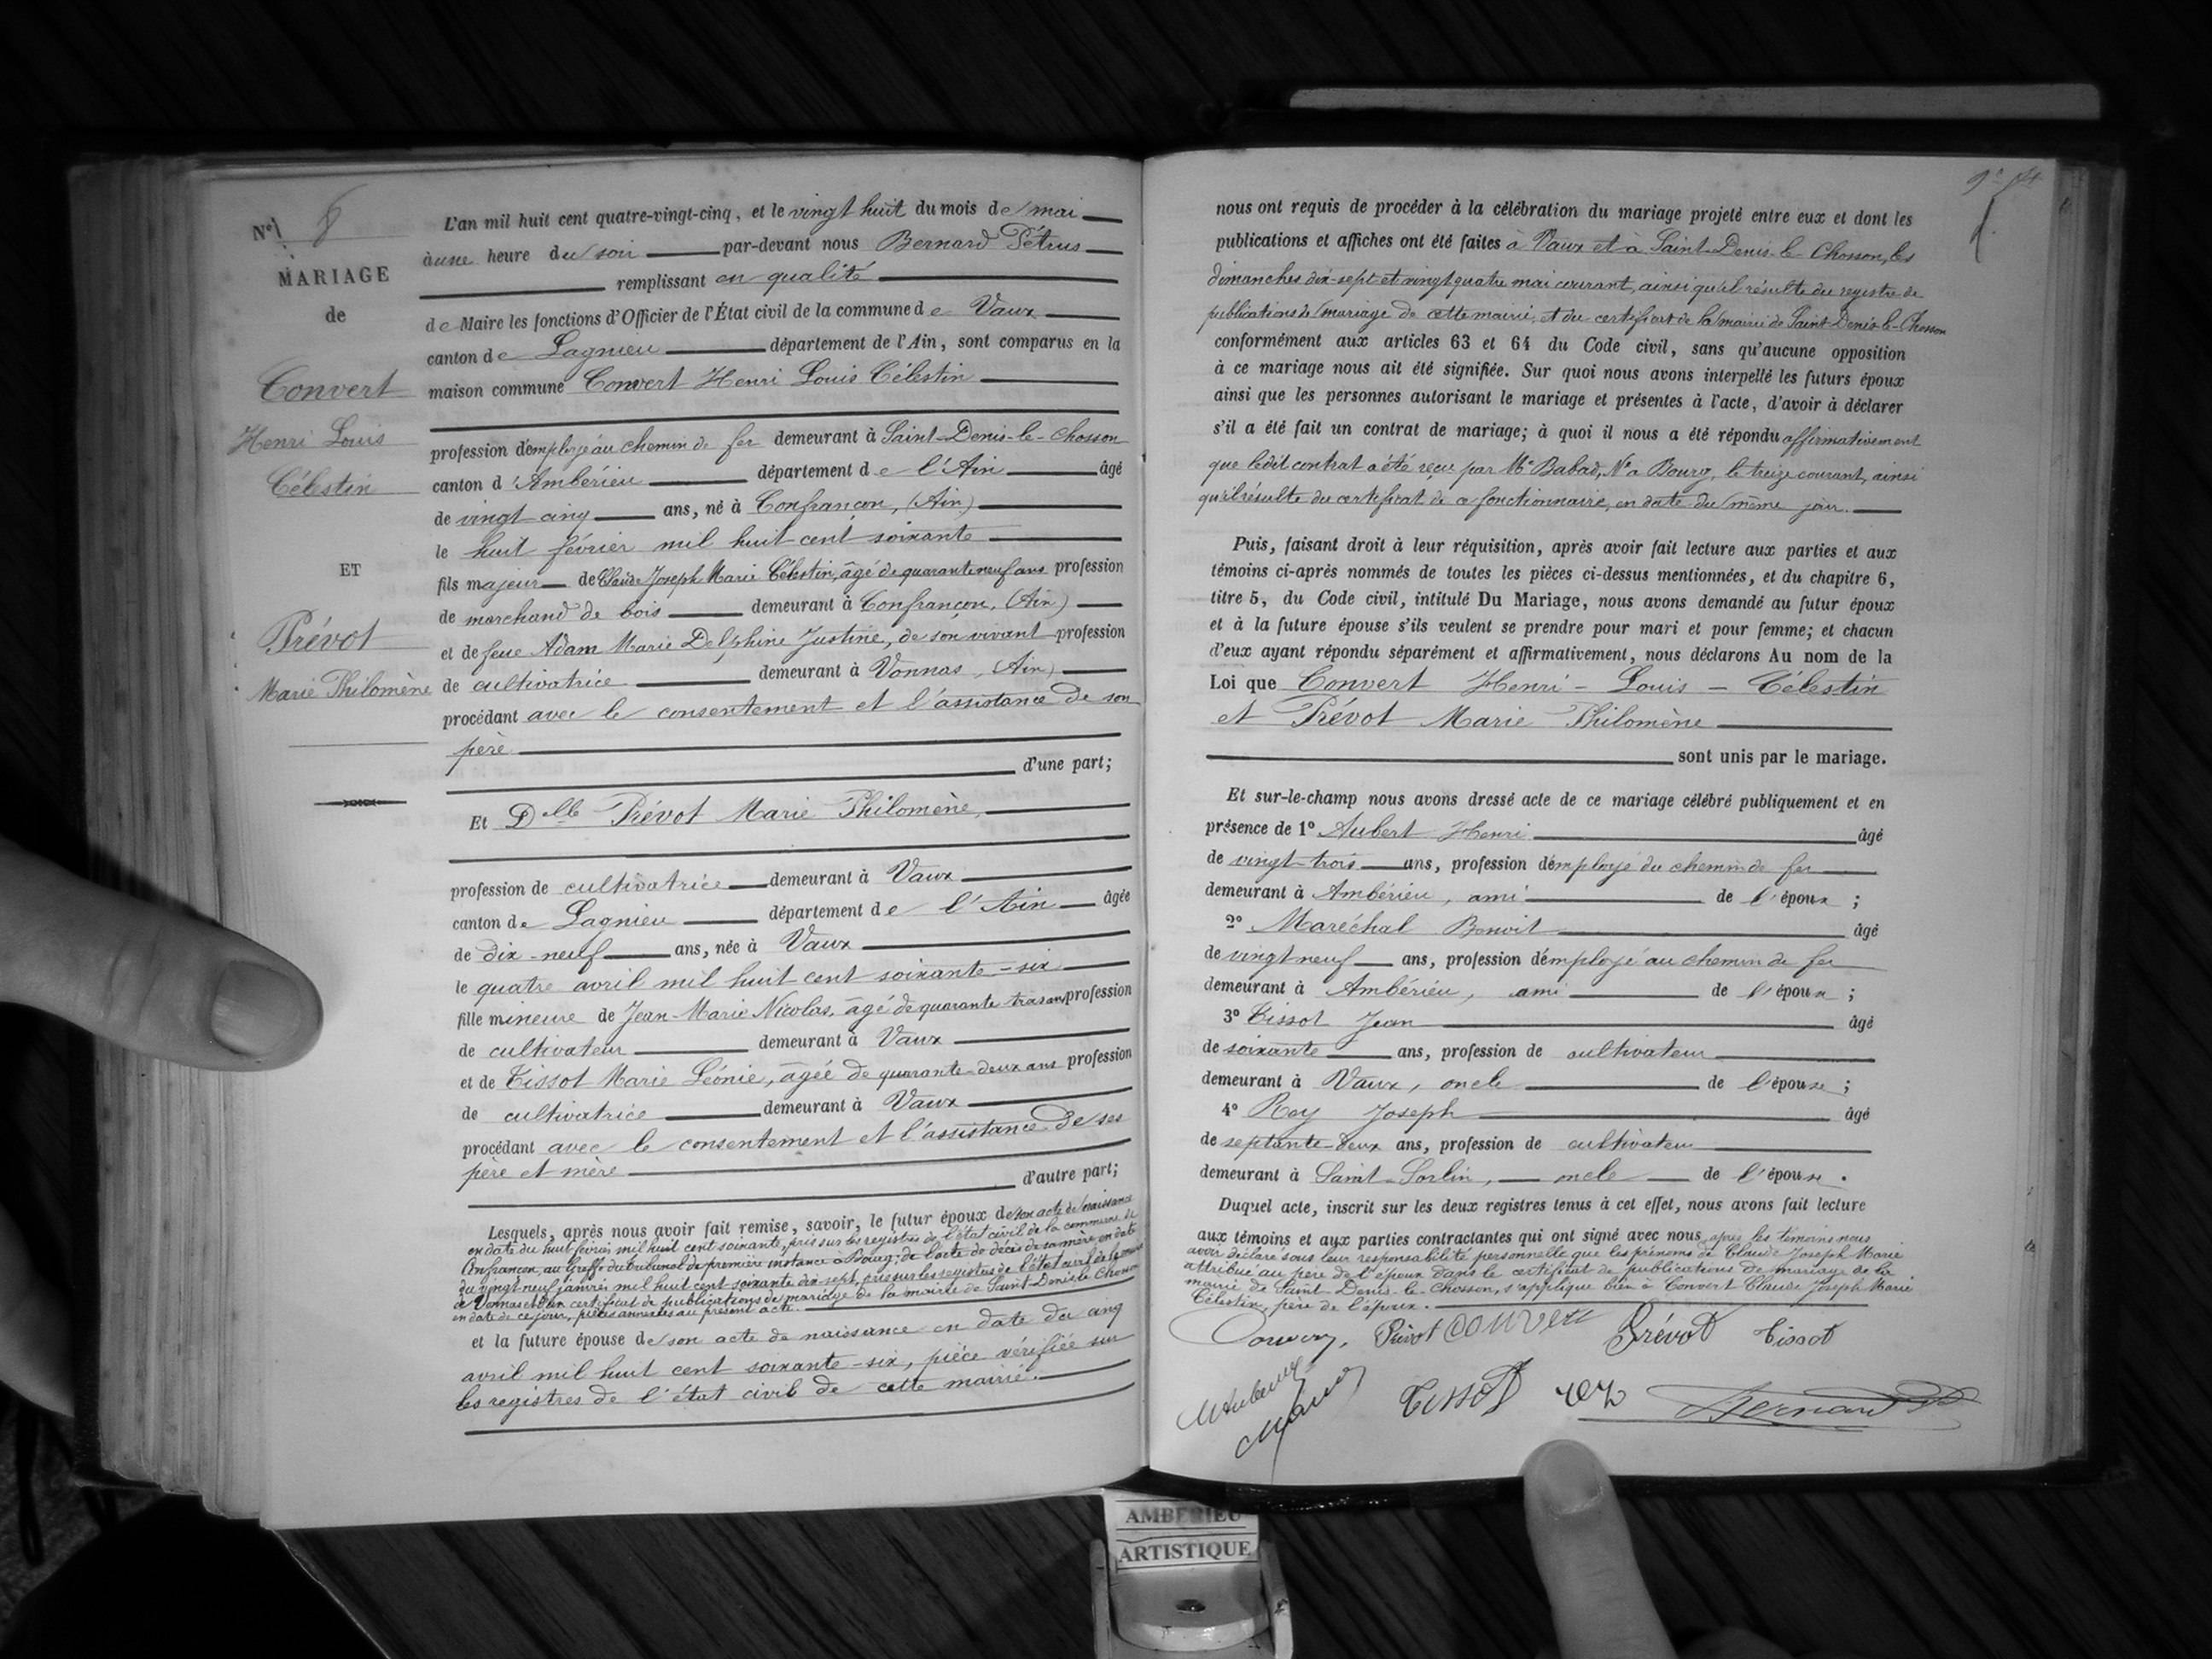 N° 8
MARIAGE
de
Convert
Henri Louis
Célestin
ET
Prévot
Marie Philomène
L'an mil huit cent quatre-vingt-cinq, et le vingt huit du mois de mai
à une heure du soir par-devant nous Bernard Pétrus
remplissant en qualité
de Maire les fonctions d'Officier de l'État civil de la commune de Vaux
canton de Lagnieu département de l'Ain, sont comparus en la
maison commune Convert Henri Louis Célestin
profession d'employé au chemin de fer demeurant à Saint-Denis-le-Chosson
canton d'Ambérieu département de l'Ain âgé
de vingt cinq ans, né à Confrançon, (Ain)
le huit février mil huit cent soixante
fils majeur de Claude Joseph Marie Célestin, âgé de quarante neuf ans profession
de marchand de bois demeurant à Confrançon, (Ain)
et de feue Adam Marie Delphine Justine, de son vivant profession
de cultivatrice demeurant à Vonnas, (Ain)
procédant avec le consentement et l'assistance de son
père
d'une part;
Et Dlle Prévot Marie Philomène,
profession de cultivatrice demeurant à Vaux
canton de Lagnieu département de l'Ain âgée
de dix-neuf ans, née à Vaux
le quatre avril mil huit cent soixante-six
fille mineure de Jean-Marie Nicolas, âgé de quarante trois ans profession
de cultivateur demeurant à Vaux
et de Tissot Marie Léonie, âgée de quarante-deux ans profession
de cultivatrice demeurant à Vaux
procédant avec le consentement et l'assistance de ses
père et mère
d'autre part;
Lesquels, après nous avoir fait remise, savoir, le futur époux de son acte de naissance
en date du huit février mil huit cent soixante, pris sur les registres de l'état civil de la commune de
Confrançon, au Greffe du tribunal de première instance à Bourg; de l'acte de décès de sa mère, en date
du vingt neuf janvier mil huit cent soixante dix-sept, pris sur les registres de l'état civil de la
de Vonnas et d'un certificat de publications de mariage de la mairie de Saint-Denis-le-Chosson
en date de ce jour, pièces annexées au présent acte.
et la future épouse de son acte de naissance en date du cinq
avril mil huit cent soixante-six, pièce vérifiée sur
les registres de l'état civil de cette mairie.
nous ont requis de procéder à la célébration du mariage projeté entre eux et dont les
publications et affiches ont été faites à Vaux et à Saint-Denis-le-Chosson, les
dimanches dix-sept et vingt quatre mai courant, ainsi qu'il résulte du registre de
publications de mariage de cette mairie, et du certificat de la mairie de Saint-Denis-le-Chosson
conformément aux articles 63 et 64 du Code civil, sans qu'aucune opposition
à ce mariage nous ait été signifiée. Sur quoi nous avons interpellé les futurs époux
ainsi que les personnes autorisant le mariage et présentes à l'acte, d'avoir à déclarer
s'il a été fait un contrat de mariage; à quoi il nous a été répondu affirmativement
que ledit contrat a été reçu par Me Babad, Nre a Bourg, le treize courant, ainsi
qu'il résulte du certificat de ce fonctionnaire, en date du même jour.
Puis, faisant droit à leur réquisition, après avoir fait lecture aux parties et aux
témoins ci-après nommés de toutes les pièces ci-dessus mentionnées, et du chapitre 6,
titre 5, du Code civil, intitulé Du Mariage, nous avons demandé au futur époux
et à la future épouse s'ils veulent se prendre pour mari et pour femme; et chacun
d'eux ayant répondu séparément et affirmativement, nous déclarons Au nom de la
Loi que Convert Henri-Louis-Célestin
et Prévot Marie Philomène
sont unis par le mariage.
Et sur-le-champ nous avons dressé acte de ce mariage célébré publiquement et en
présence de 1° Aubert Henri âgé
de vingt-trois ans, profession d'employé du chemin de fer
demeurant à Ambérieu, ami de l'époux;
2° Maréchal Benoit âgé
de vingt neuf ans, profession d'employé au chemin de fer
demeurant à Ambérieu, ami de l'époux;
3° Tissot Jean âgé
de soixante ans, profession de cultivateur
demeurant à Vaux, oncle de l'épouse;
4° Rey Joseph âgé
de septante-deux ans, profession de cultivateur
demeurant à Saint-Sorlin, oncle de l'épouse.
Duquel acte, inscrit sur les deux registres tenus à cet effet, nous avons fait lecture
aux témoins et aux parties contractantes qui ont signé avec nous, après les témoins nous
avoir déclaré sous leur responsabilité personnelle que les prénoms de Claude Joseph Marie
attribué au père de l'époux dans le certificat de publications de mariage de la
mairie de Saint-Denis-le-Chosson, s'applique bien à Convert Claude Joseph Marie
Célestin, père de l'époux.
Prévot Convert Prévot Tissot
Tissot rey Bernard
AMBERIEU
ARTISTIQUE